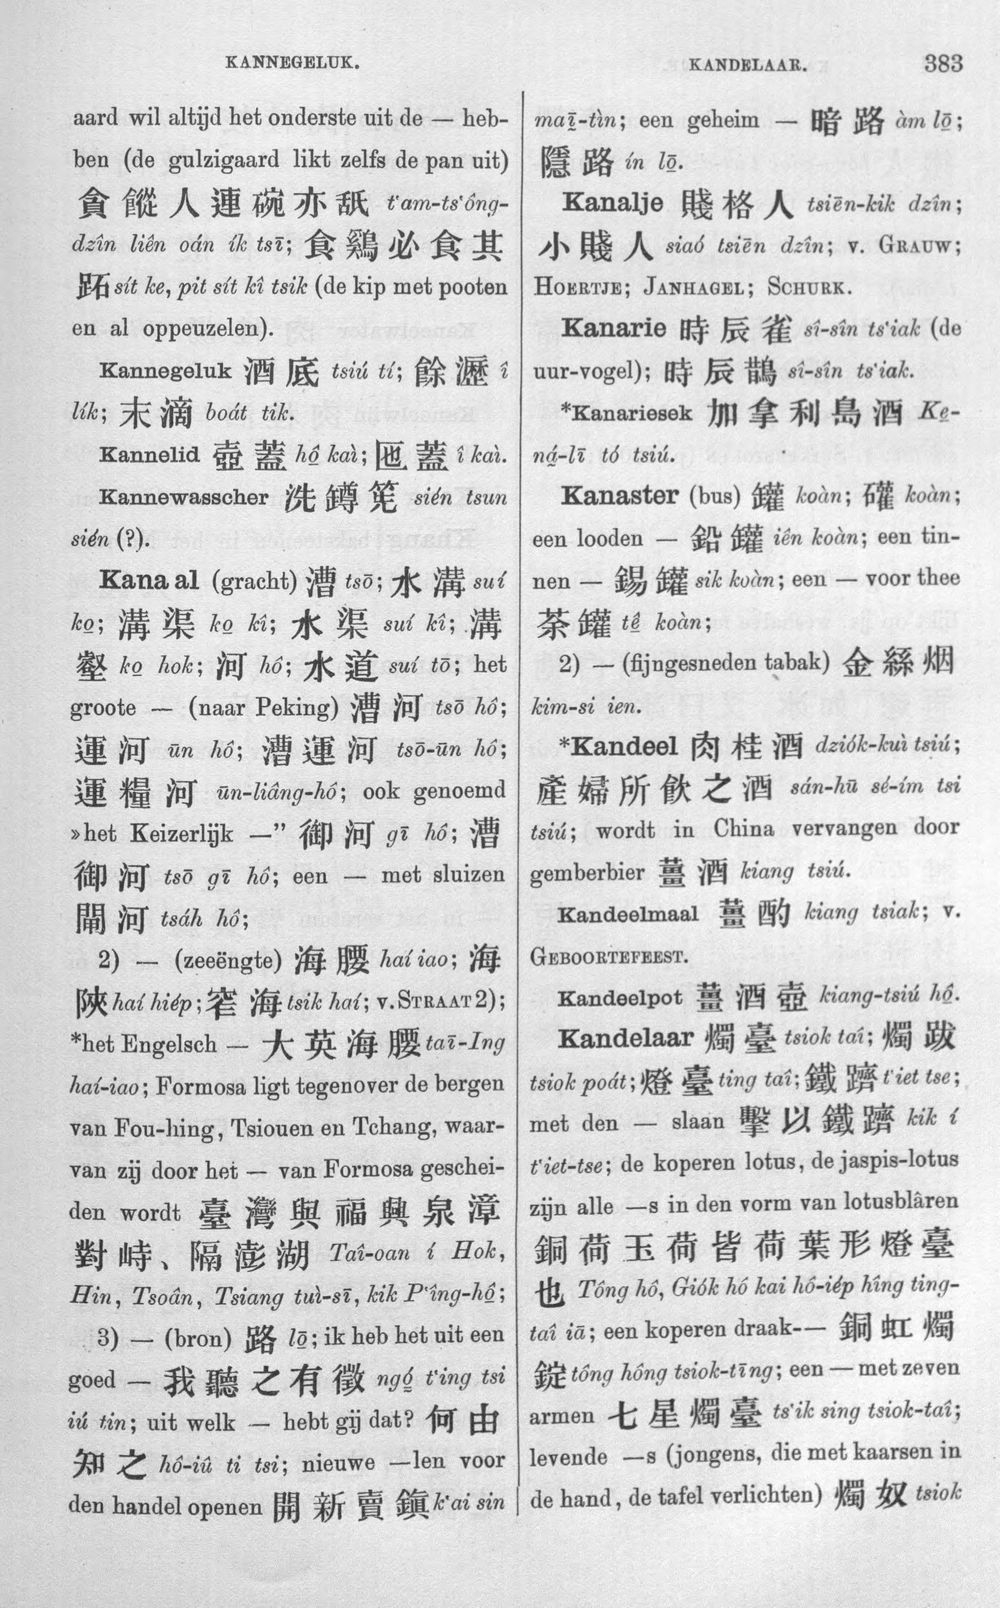 KANNEGELUK.
KANDELAAR.
383
aard wil altijd het onderste uit de — heb-
ben (de gulzigaard likt zelfs de pan uit)
貪 饞 人 連 碗 亦 舐 t‘am-ts‘ông-
dzîn liên oán ík tsī; 食 鷄 必 食 其
跖 sít ke, pit sít kî tsik (de kip met pooten
en al oppeuzelen).
Kannegeluk 酒 底 tsiú tí; 餘 瀝 î
lík; 末 滴 boát tik.
Kannelid 壺 蓋 hô kaì; 匜 蓋 î kaì.
Kannewasscher 洗 鐏 筅 sién tsun
sién (?).
Kanaal (gracht) 漕 tsō; 水 溝 suí
ko; 溝 渠 ko kî; 水 渠 suí kî; 溝
壑 ko hok; 河 hô; 水 道 suí tō; het
groote — (naar Peking) 漕 河 tsō hô;
運 河 ūn hô; 漕 運 河 tsō-ūn hô;
運 糧 河 ūn-liâng-hô; ook genoemd
»het Keizerlijk —” 御 河 gī hô; 漕
御 河 tsō gī hô; een — met sluizen
閘 河 tsáh hô;
2) — (zeeëngte) 海 腰 haí iao; 海
陝 haí hiép; 窄 海 tsik haí; v. STRAAT 2);
*het Engelsch — 大 英 海 腰 taī-Ing
haí-iao; Formosa ligt tegenover de bergen
van Fou-hing, Tsiouen en Tchang, waar-
van zij door het — van Formosa geschei-
den wordt 臺 灣 與 福 興 泉 漳
對 峙、隔 澎 湖 Taî-oan í Hok,
Hin, Tsoân, Tsiang tuì-sī, kik P‘îng-hô;
3) — (bron) 路 lō; ik heb het uit een
goed — 我 聽 之 有 徵 ngó t‘ing tsi
iú tin; uit welk — hebt gij dat? 何 由
知 之 hô-iû ti tsi; nieuwe —len voor
den handel openen 開 新 賣 鎭 k‘ai sin
maī-tìn; een geheim — 暗 路 àm lō;
隱 路 ín lō.
Kanalje 賤 格 人 tsiēn-kik dzîn;
小 賤 人 siaó tsiēn dzîn; v. GRAUW;
HOERTJE; JANHAGEL; SCHURK.
Kanarie 時 辰 雀 sî-sîn ts‘iak (de
uur-vogel); 時 辰 鵲 sî-sîn ts‘iak.
*Kanariesek 加 拿 利 島 酒 Ke-
ná-lī tó tsiú.
Kanaster (bus) 罐 koàn; 礶 koàn;
een looden — 鉛 罐 iên koàn; een tin-
nen — 錫 罐 sik koàn; een — voor thee
茶 罐 tê koàn;
2) — (fijngesneden tabak) 金 絲 烟
kim-si ien.
*Kandeel 肉 桂 酒 dziók-kuì tsiú;
產 婦 所 飲 之 酒 sán-hū sé-ím tsi
tsiú; wordt in China vervangen door
gemberbier 薑 酒 kiang tsiú.
Kandeelmaal 薑 酌 kiang tsiak; v.
GEBOORTEFEEST.
Kandeelpot 薑 酒 壺 kiang-tsiú hô.
Kandelaar 燭 臺 tsiok taî; 燭 跋
tsiok poát; 燈 臺 ting taî; 鐵 躋 t‘iet tse;
met den — slaan 擊 以 鐵 躋 kik í
t‘iet-tse; de koperen lotus, de jaspis-lotus
zijn alle —s in den vorm van lotusblâren
銅 荷 玉 荷 皆 荷 葉 形 燈 臺
也 Tông hô, Giók hô kai hô-iép hîng ting-
taî iā; een koperen draak-— 銅 虹 燭
錠 tông hông tsiok-tīng; een — met zeven
armen 七 星 燭 臺 ts‘ik sing tsiok-taî;
levende —s (jongens, die met kaarsen in
de hand, de tafel verlichten) 燭 奴 tsiok